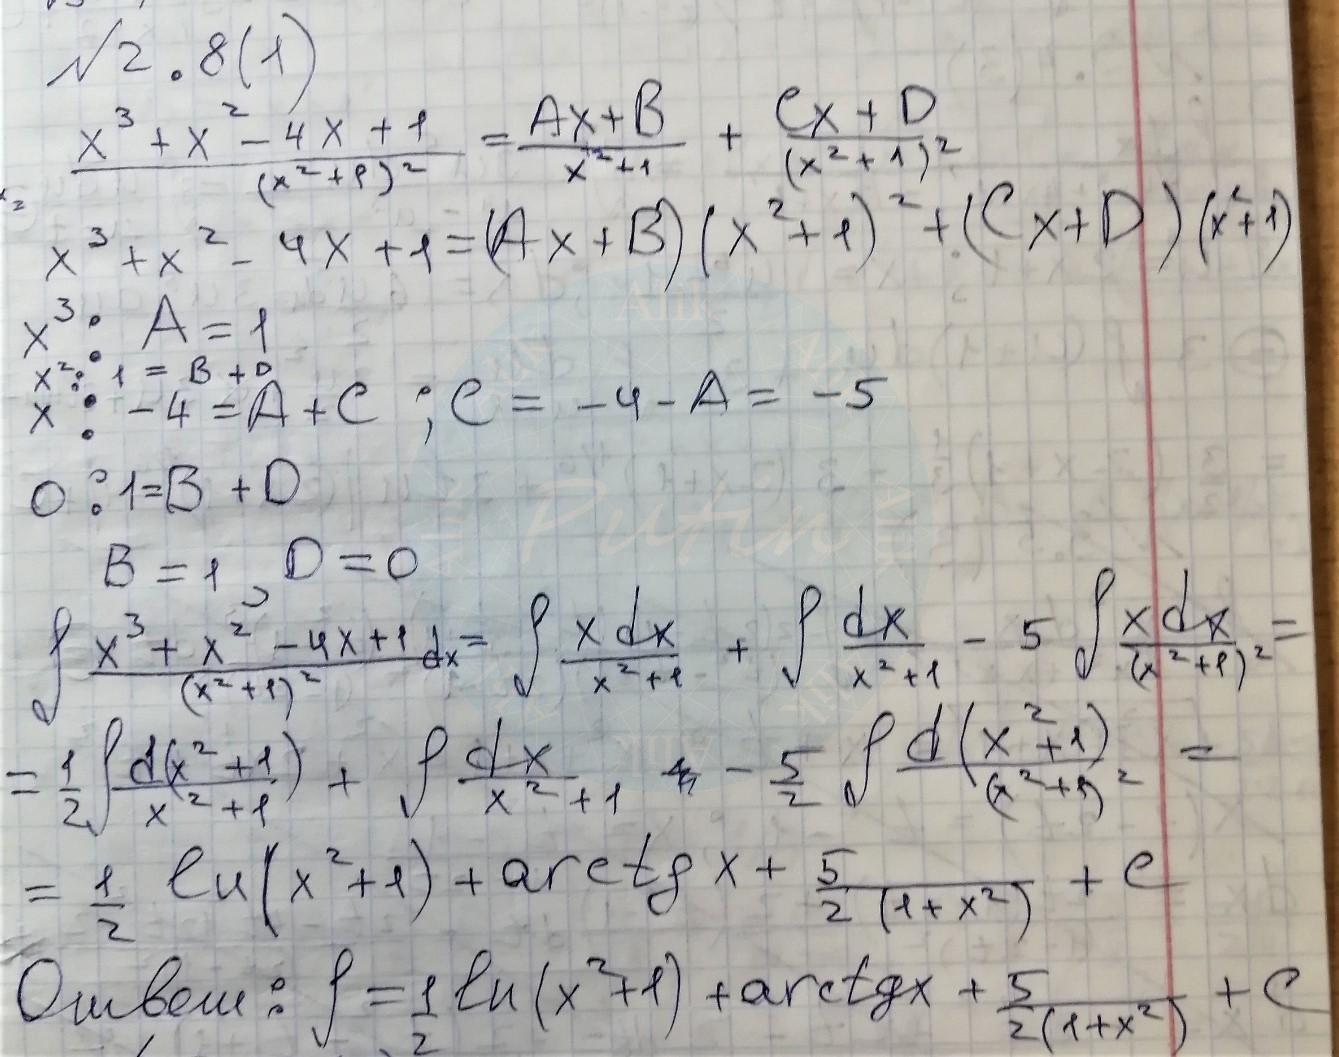 №2.8(1)
x³ + x² - 4x + 1 / (x²+1)² = Ax+B / x²+1 + Cx+D / (x²+1)²
x³ + x² - 4x + 1 = (Ax+B)(x²+1)² + (Cx+D)(x²+1)
x³: A = 1
x²: 1 = B + D
x: -4 = A + C ; C = -4 - A = -5
0: 1 = B + D
B = 1, D = 0
∫ x³ + x² - 4x + 1 / (x²+1)² dx = ∫ x dx / x²+1 + ∫ dx / x²+1 - 5 ∫ x dx / (x²+1)² =
= 1/2 ∫ d(x²+1) / x²+1 + ∫ dx / x²+1 - 5/2 ∫ d(x²+1) / (x²+1)² =
= 1/2 ln(x²+1) + arctg x + 5 / 2(1+x²) + C
Ответ: ∫ = 1/2 ln(x²+1) + arctg x + 5 / 2(1+x²) + C
Alik
Putin